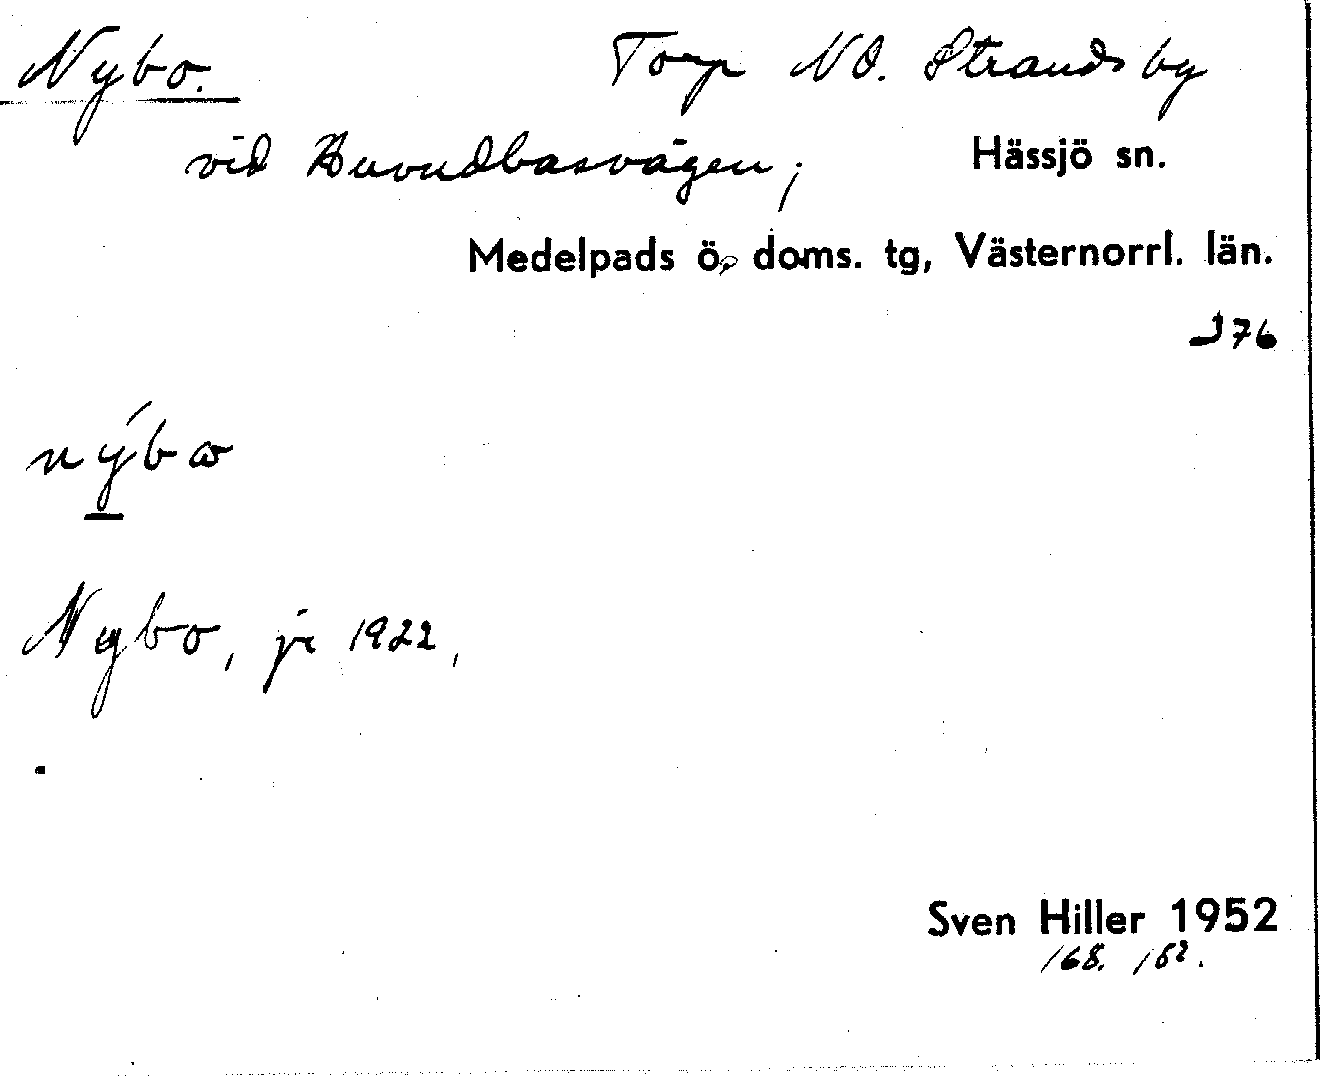 Nybo. Torp NO. Strands by
vid Huvudbasvägen, Hässjö sn.
Medelpads ö. doms. tg, Västernorrl. län.
J76
nýbɷ
Nybo, jr 1922,
Sven Hiller 1952
168. 152.